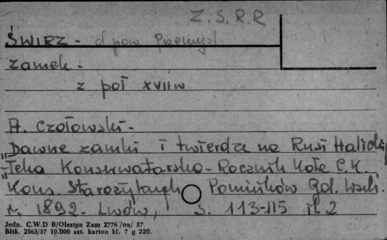 Z.S.R.R
ŚWIRZ - d. pow. Przemyśl
zamek -
z poł XVII w
A. Czołowski -
Dawne zamki i twierdze na Rusi Halick.
"Teka Konserwatorska - Rocznik Koła C.K.
Kons. Starożytnych Pomników Gal. Wsch.
r. 1892. Lwów, s. 113-115
Jedn. C.W.D B/Olsztyn Zam 2776 /on/ 57
Bltk. 2563/57 10.000 szt. karton kl. 7 g 220.